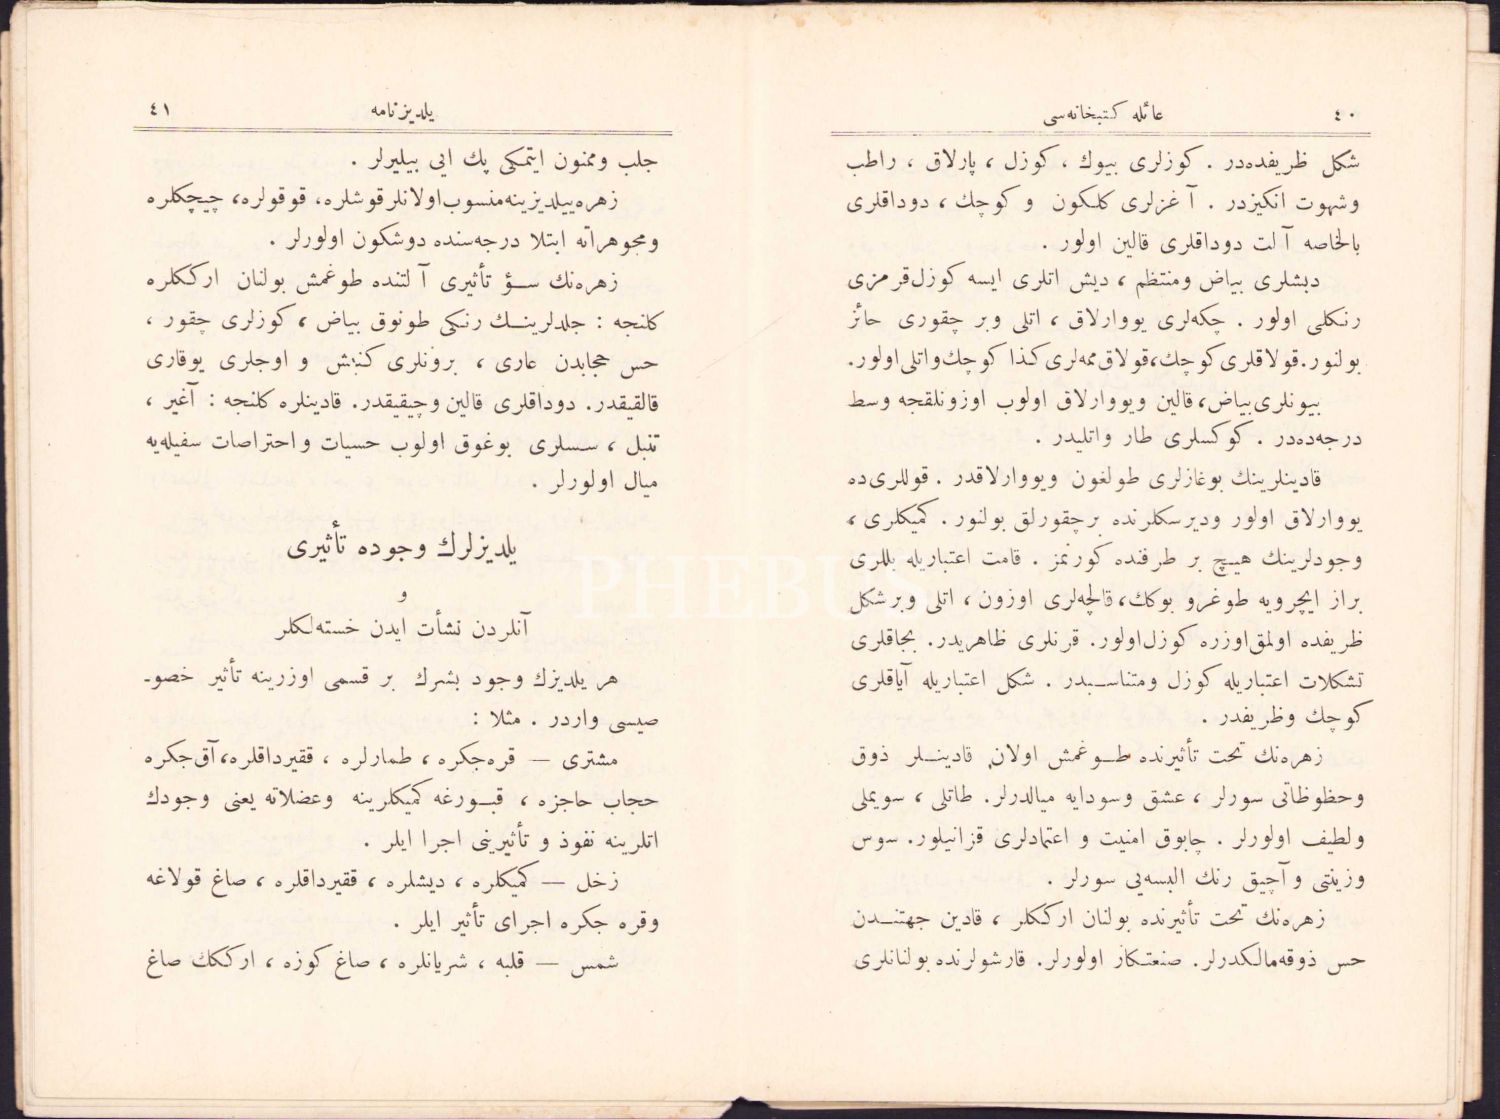 ٤٠
عائله كتبخانه‌سی
شكل ظریفده‌در . كوزلری بیوك ، كوزل ، پارلاق ، راطب
وشهوت انكیزدر . آغزلری كلكون و كوچك ، دوداقلری
بالخاصه آلت دوداقلری قالین اولور .
دیشلری بیاض ومنتظم ، دیش اتلری ایسه كوزل قرمزی
رنكلی اولور . چكه‌لری یووارلاق ، اتلی وبر چقوری حائز
بولنور. قولاقلری كوچك، قولاق ممه‌لری كذا كوچك واتلی اولور.
بیونلری بیاض، قالین ویووارلاق اولوب اوزونلقجه وسط
درجه‌ده‌در . كوكسلری طار واتلیدر .
قادینلرینك بوغازلری طولغون ویووارلاقدر . قوللری ده
یووارلاق اولور ودیرسكلرنده بر چقورلق بولنور . كمیكلری ،
وجودلرینك هیچ بر طرفنده كورنمز . قامت اعتباریله بللری
براز ایچرویه طوغرو بوكك، قالچه‌لری اوزون ، اتلی وبر شكل
ظریفده اولمق اوزره كوزل اولور. قرنلری ظاهریدر. بجاقلری
تشكلات اعتباریله كوزل ومتناسبدر . شكل اعتباریله آیاقلری
كوچك وظریفدر .
زهره‌نك تحت تأثیرنده طوغمش اولان قادینلر ذوق
وحظوظاتی سورلر ، عشق وسودایه میالدرلر. طاتلی ، سویملی
ولطیف اولورلر . چابوق امنیت و اعتمادلری قزانیلور. سوس
وزینتی و آچیق رنك البسه‌یی سورلر .
زهره‌نك تحت تأثیرنده بولنان ارككلر ، قادین جهتندن
حس ذوقه مالكدرلر. صنعتكار اولورلر. قارشولرنده بولنانلری
یلدیزنامه
٤١
جلب وممنون ایتمكی پك ایی بیلیرلر .
زهره ییلدیزینه منسوب اولانلر قوشلره، قوقولره، چیچكلره
ومجوهراته ابتلا درجه‌سنده دوشكون اولورلر .
زهره‌نك سؤ تأثیری آلتنده طوغمش بولنان ارككلره
كلنجه : جلدلرینك رنكی طونوق بیاض ، كوزلری چقور ،
حس حجابدن عاری ، برونلری كنیش و اوجلری یوقاری
قالقیقدر. دوداقلری قالین وچیقیقدر. قادینلره كلنجه : آغیر ،
تنبل ، سسلری بوغوق اولوب حسیات و احتراصات سفیله‌یه
میال اولورلر .
یلدیزلرك وجوده تأثیری
و
آنلردن نشأت ایدن خسته‌لكلر
هر یلدیزك وجود بشرك بر قسمی اوزرینه تأثیر خصو-
صیسی واردر . مثلا :
مشتری — قره‌جكره ، طمارلره ، ققیرداقلره، آق جكره
حجاب حاجزه ، قبورغه كمیكلرینه وعضلاته یعنی وجودك
اتلرینه نفوذ و تأثیرینی اجرا ایلر .
زخل — كمیكلره ، دیشلره ، ققیرداقلره ، صاغ قولاغه
وقره جكره اجرای تأثیر ایلر .
شمس — قلبه ، شریانلره ، صاغ كوزه ، ارككك صاغ
PHEBUS